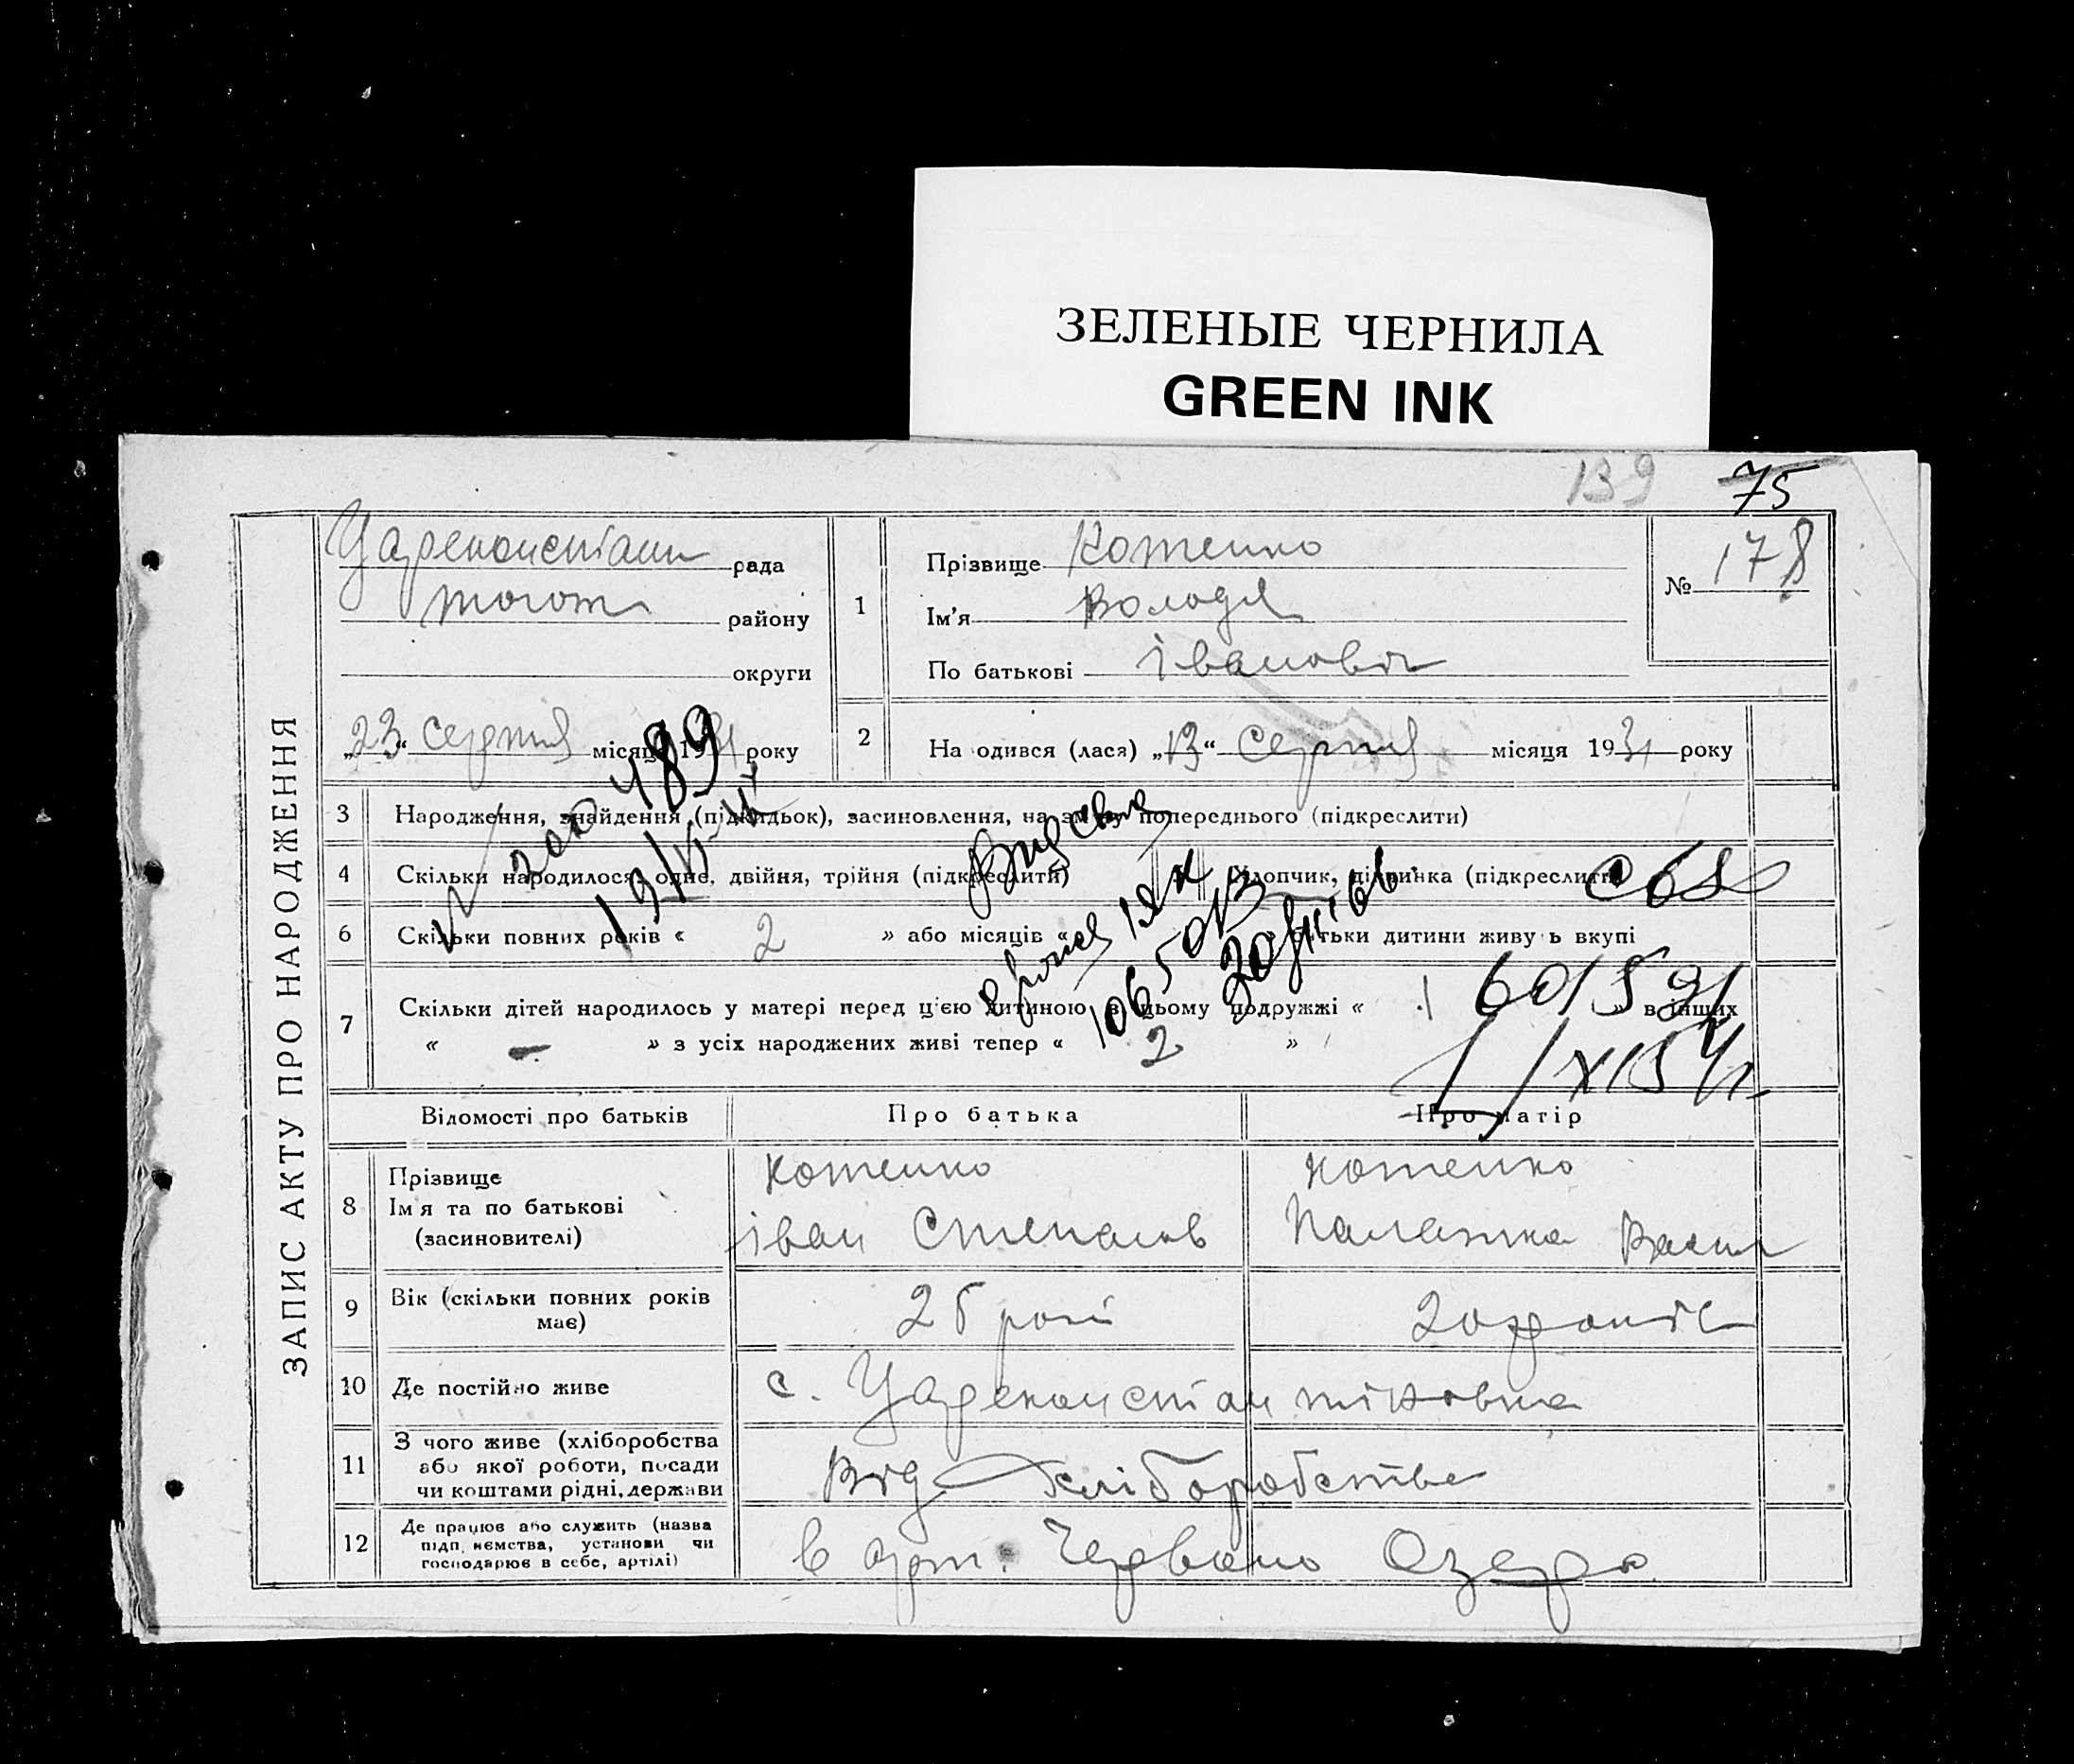 ЗЕЛЕНЫЕ ЧЕРНИЛА
GREEN INK
139 75
ЗАПИС АКТУ ПРО НАРОДЖЕННЯ
Цареконстант рада
району
округи
„23“ серпня місяця 1931 року
1
Прізвище Котенко
Ім'я Володя
По батькові Іванович
№ 178
2
На одився (лася) „13“ серпня місяця 1931 року
3 Народження, знайдення (підкидьок), засиновлення, на зміну попереднього (підкреслити)
4 Скільки народилося: одне, двійня, трійня (підкреслити) хлопчик, дівчинка (підкреслити)
489
6 Скільки повних років « 2 » або місяців « » батьки дитини живу ь вкупі
7 Скільки дітей народилось у матері перед цією дитиною в цьому подружжі « 1 » в інших
« - » з усіх народжених живі тепер « 2 »
Відомості про батьків Про батька Про матір
8 Прізвище
Ім'я та по батькові
(засиновителі)
Котенко
Іван Степанов
Котенко
Палажка Васил
9 Вік (скільки повних років
має)
25 рок
20
10 Де постійно живе с. Цареконстантиновка
11 З чого живе (хліборобства
або якої роботи, посади
чи коштами рідні, держави
Від хліборобства
12 Де працює або служить (назва
підп ємства, установи чи
господарює в себе, артілі)
в арт. Червоно Озеро